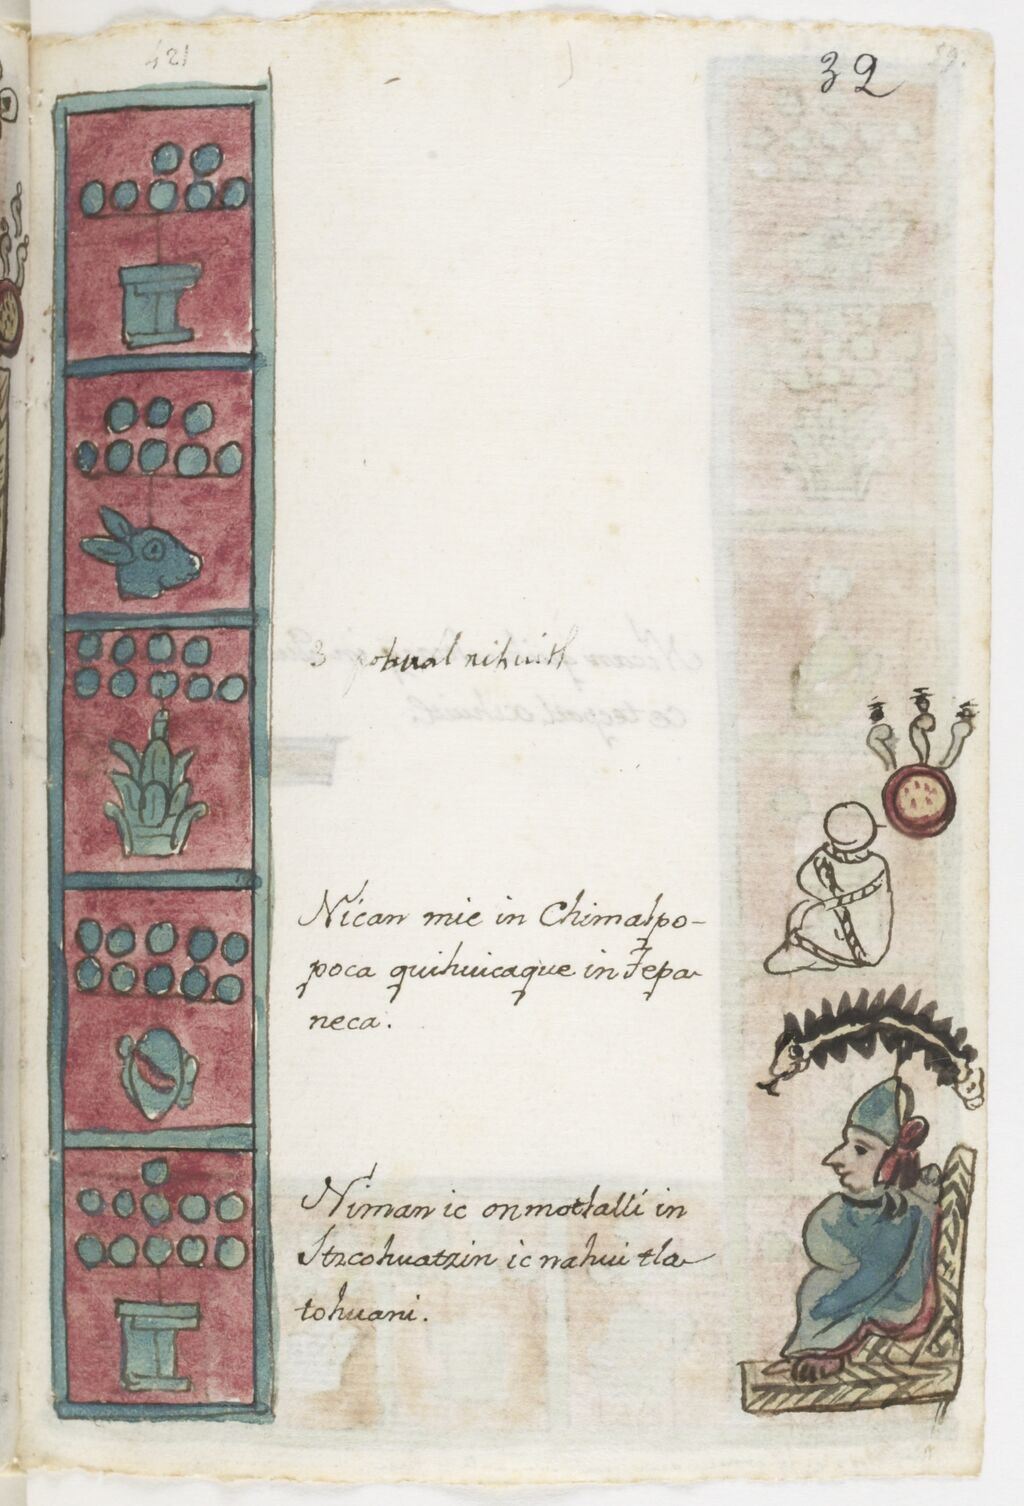 421
32
59.
3 pohual xihuitl
Nican mic in Chimalpo-
poca quihuicaque in Tepa
neca.
Niman ic onmotlalli in
Itzcohuatzin ic nahui tla
tohuani.